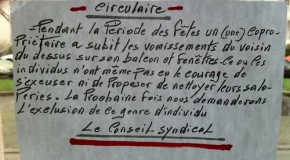 Circulaire
- Pendant la Période des fêtes un (une) Copro-
Priétaire a subit les vomissements du voisin
du dessus sur son balcon et fenêtres. Ce ou Les
individus n'ont même pas eu le courage de
s'excuser ni de Proposer de nettoyer leurs salo-
Peries. La Prochaine fois nous demanderons
L'exclusion de ce genre d'individu
Le Conseil syndical